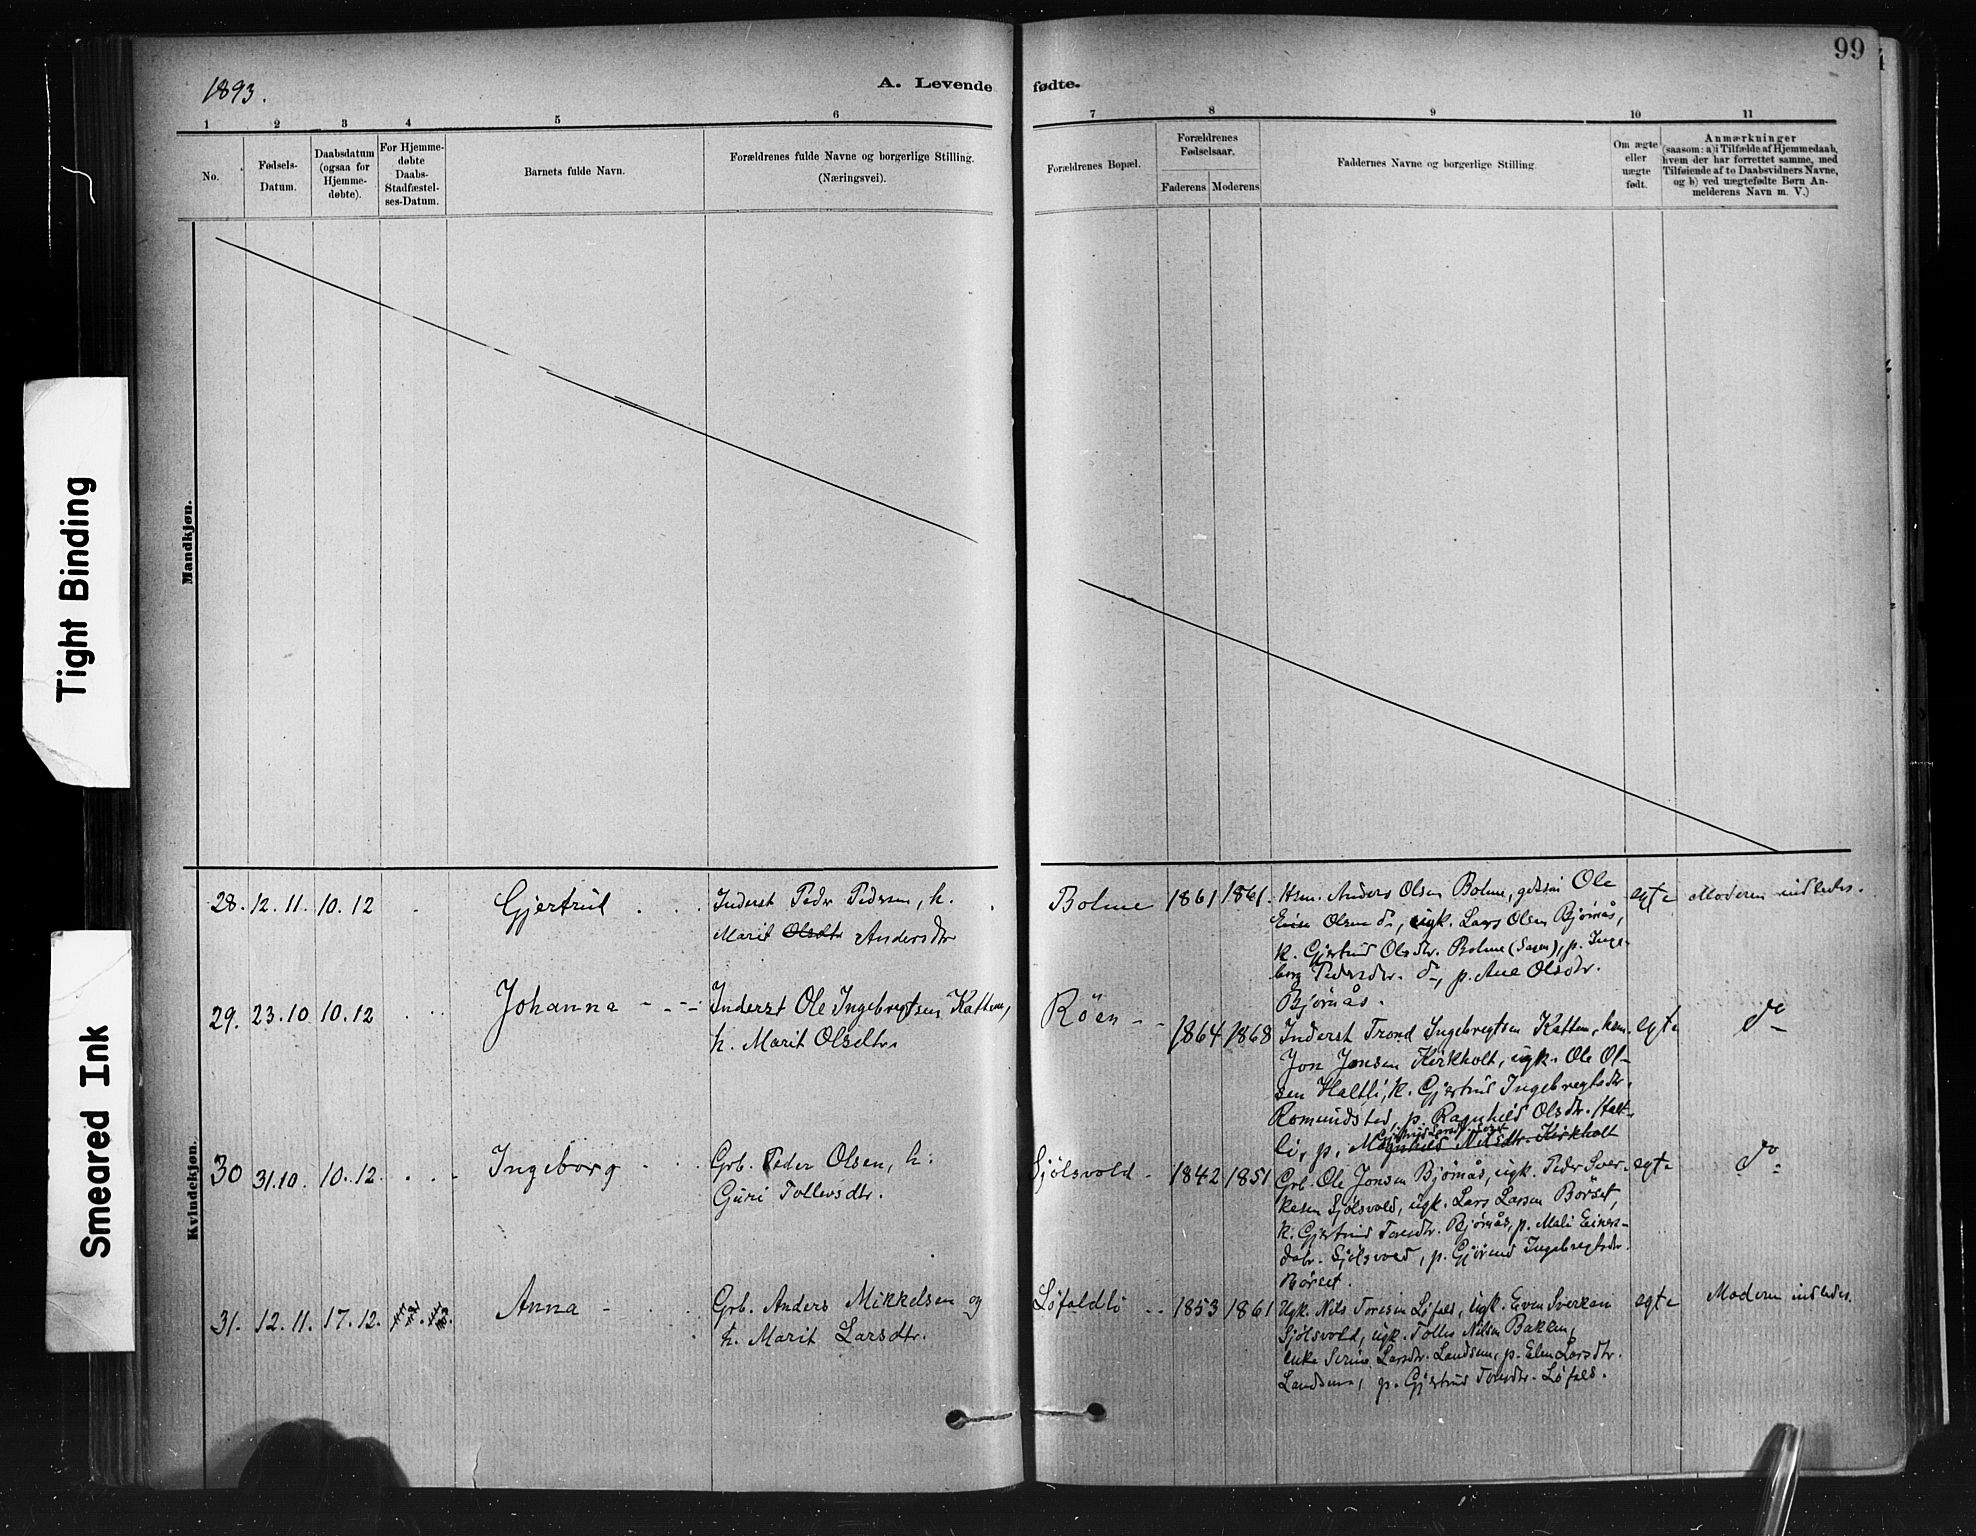 99
1893.
A. Levende fødte.
1 2 3 4 5 6 7 8 9 10 11
No.
Fødsels-
Datum.
Daabsdatum
(ogsaa for
Hjemme-
døbte).
For Hjemme-
døbte
Daabs-
Stadfæstel-
ses-Datum.
Barnets fulde Navn.
Forældrenes fulde Navne og borgerlige Stilling.
(Næringsvei).
Forældrenes Bopæl.
Forældrenes
Fødselsaar.
Faderens Moderens
Faddernes Navne og borgerlige Stilling.
Om ægte
eller
uægte
født.
Anmærkninger
(saasom: a) i Tilfælde af Hjemmedaab,
hvem der har forrettet samme, med
Tilføiende af to Daabsvidners Navne,
og b) ved uægtefødte Børn An-
melderens Navn m. V.)
Mandkjøn.
Tight Binding
Smeared Ink
Kvindekjøn.
28. 12. 11. 10. 12
Gjertrud
Inderst Peder Pedersen, h.
Marit Olsdtr Andersdtr
Bolme
1861 1861.
Hsm. Anders Olsen Bolme, Ole
Olsen do, ugk. Lars Olsen Bjørnås,
k. Gjertrud Olsdtr. Bolme (Sagen), p. Inge-
borg Pedersdtr. do, p. Ane Olsdtr.
Bjørnås.
egte
Moderen indledes.
29. 23. 10 10. 12
Johanna
Inderst Ole Ingebregtsen Kattem,
h. Marit Olsdtr.
Röen
1864 1868
Inderst Trond Ingebregtsen Kattem,
Jon Jonsen Kirkholt, ugk. Ole Ol-
sen Haltli, k. Gjertrud Ingebregtsdtr.
Romundstad, p. Ragnhild Olsdtr. Halt-
li, p. Magnhild Nilsdtr. Kirkholt
egte
do
30 31. 10. 10. 12.
Ingeborg
Grb. Peder Olsen, h.
Guri Tollevsdtr.
Sjölsvold
1842 1851
Grb. Ole Jonsen Bjørnås, ugk. Peder Sver-
kesen Sjölsvold, ugk. Lars Larsen Börset,
k. Gjertrud Toresdtr. Bjørnås, p. Mali Einers-
datr. Sjölsvold, p. Gjørund Ingebregtsdtr.
Börset.
egte
do
31. 12. 11. 17. 12.
Anna
Grb. Anders Mikkelsen og
h. Marit Larsdtr.
Løfaldli
1853 1861
Ugk. Nils Toresen Løfald, ugk. Even Sverkesen
Sjölsvold, ugk. Tollev Nilsen Bakken,
enke Larsdtr. Landsem, p. Elen Larsdtr.
Landsem, p. Gjertrud Toresdtr. Løfald.
egte
Moderen indledes.